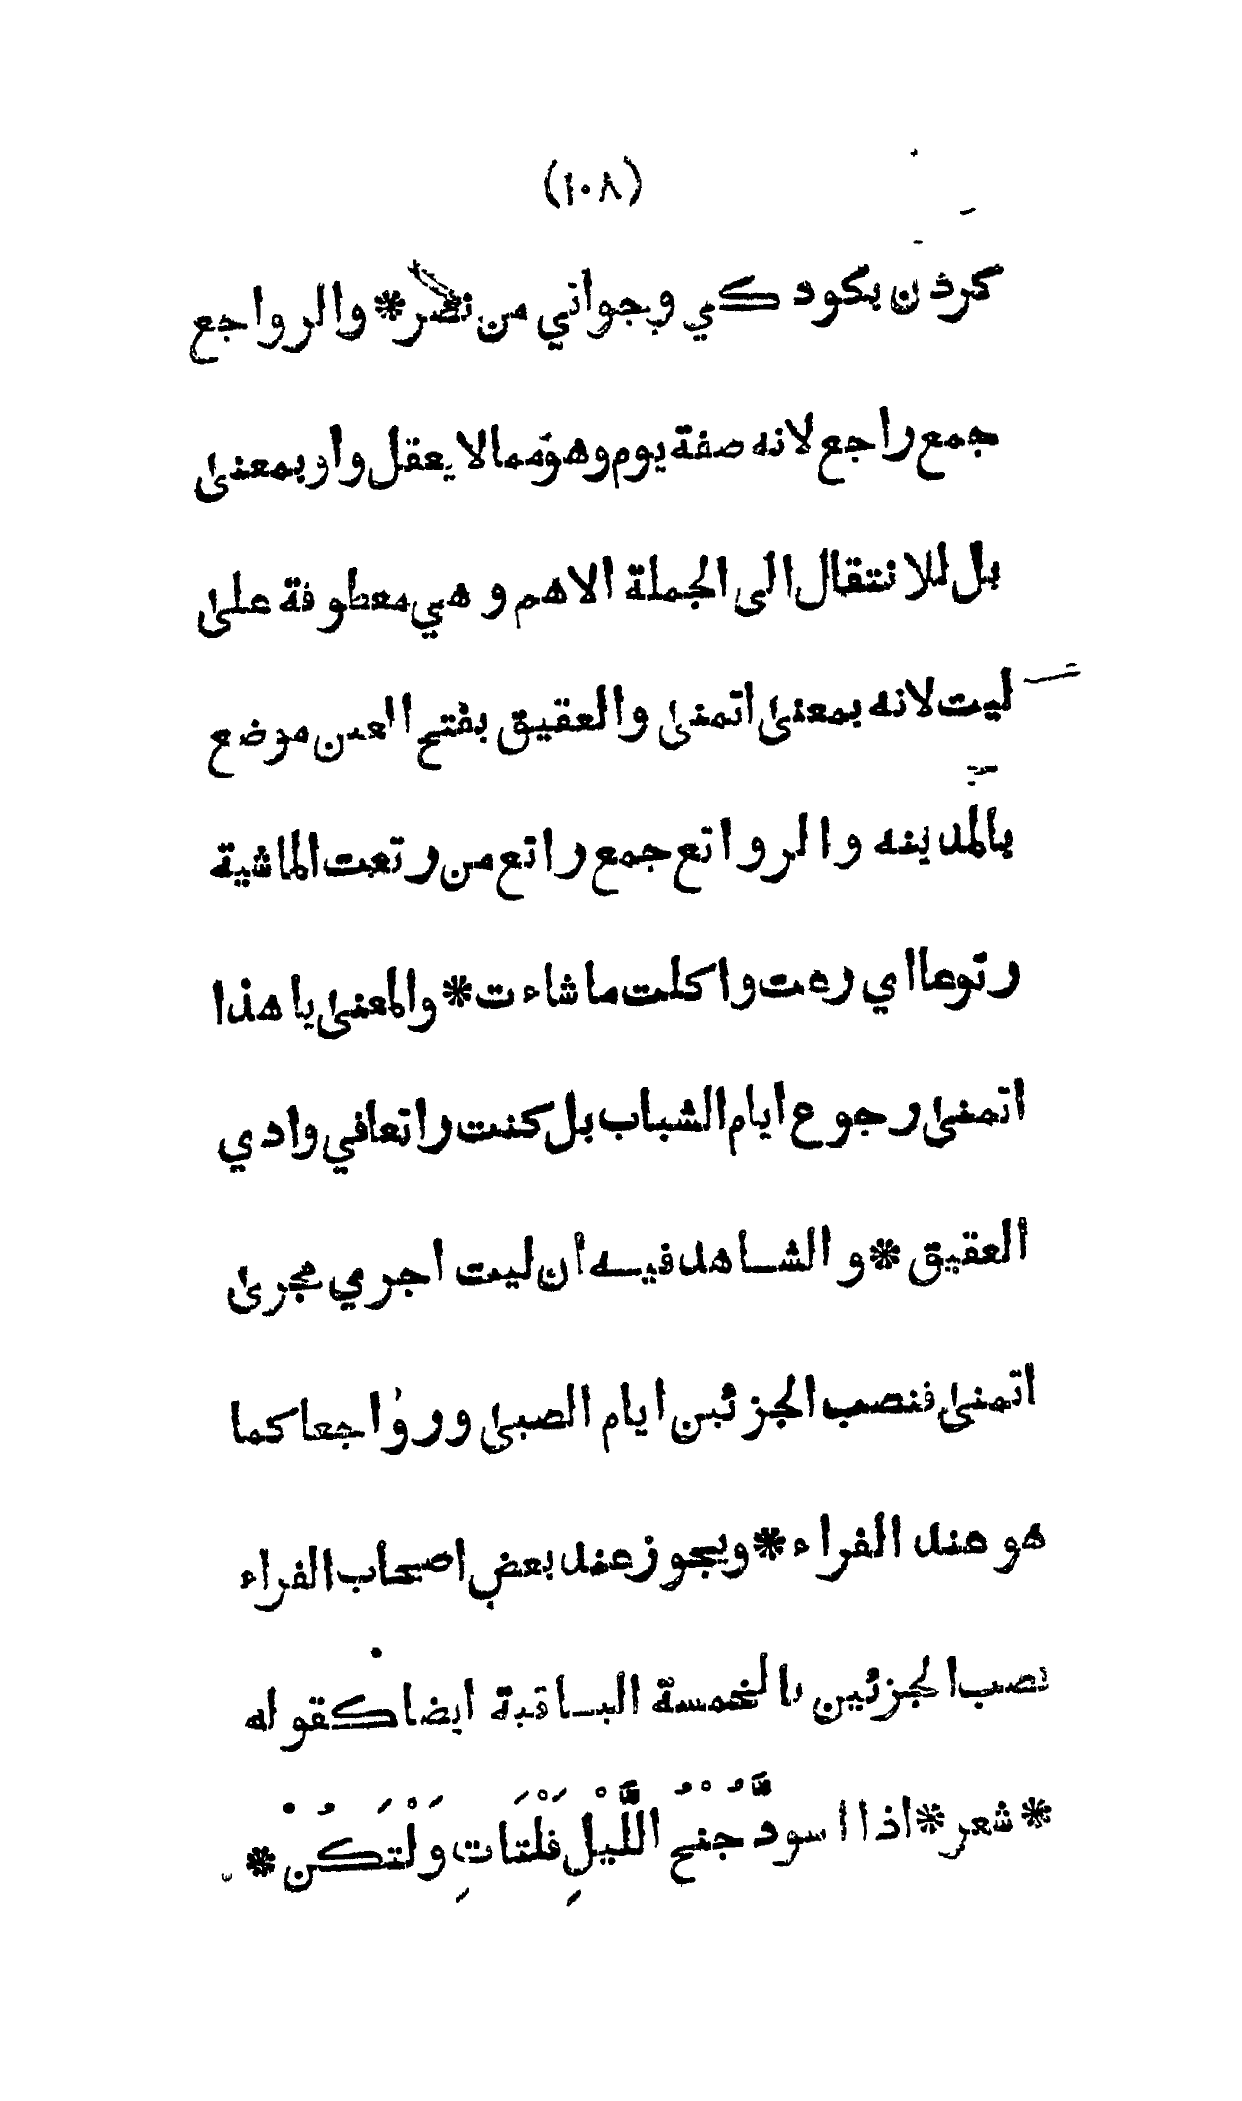 (١٠٨)
كردن بكودكي وجواني من نصر * والرواجع
جمع راجع لانه صفة يوم وهو مما لا يعقل واو بمعنى
بل للانتقال الى الجملة الاهم وهي معطوفة على
ليت لانه بمعنى اتمنى والعقيق بفتح العين موضع
بالمدينه والرواتع جمع راتع من رتعت الماشية
رتوعا اي رعت واكلت ما شاءت * والمعنى يا هذا
اتمنى رجوع ايام الشباب بل كنت راتعا في وادي
العقيق * والشاهد فيه ان ليت اجرمي مجرى
اتمنى فنصب الجزئين ايام الصبى ورواجعا كما
هو عند الفراء * ويجوز عند بعض اصحاب الفراء
نصب الجزئين بالخمسة الباقية ايضا كقوله
* شعر * اذا اسودَّ جُنْحُ اللَّيْلِ فَلْتَاتِ وَلْتَكُنْ *